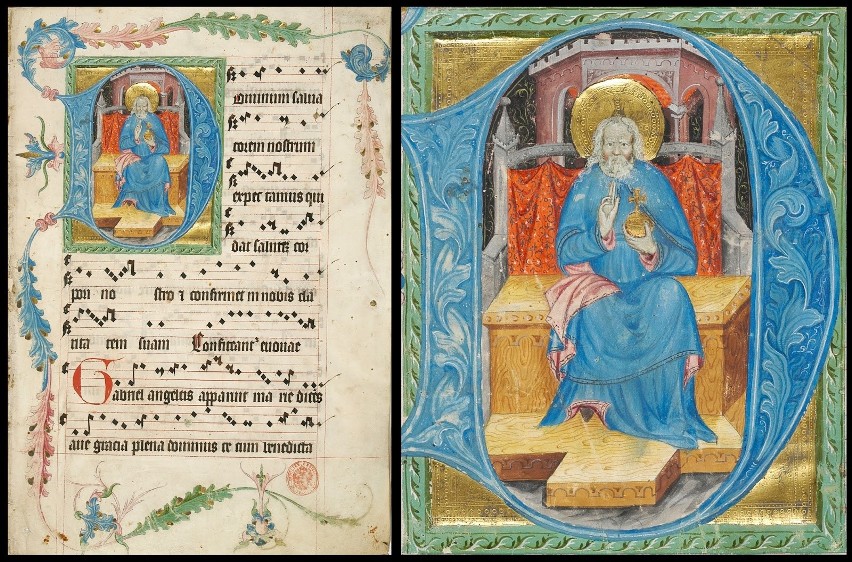 Dominum salua
torem nostrum
expec tamus qui
dat salutez cor
pori no stro ⁊ confirmet in nobis cla
rita tem suam Confiteant᷑ euouae
Gabriel angelus apparuit ma rie dices
aue gracia plena dominus te cum benedicta